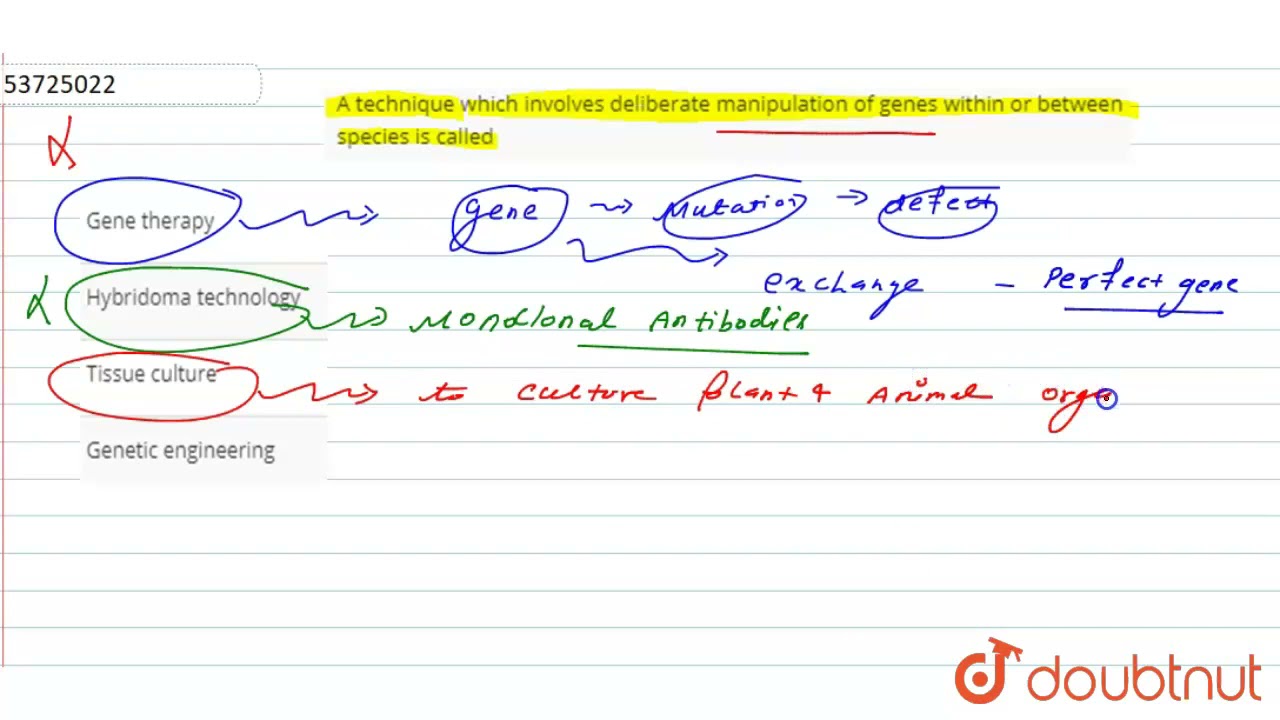 53725022
A technique which involves deliberate manipulation of genes within or between
species is called
Gene therapy
gene → Mutation → defect
exchange – Perfect gene
Hybridoma technology
Monoclonal Antibodies
Tissue culture
to culture plant & Animal orga
Genetic engineering
doubtnut